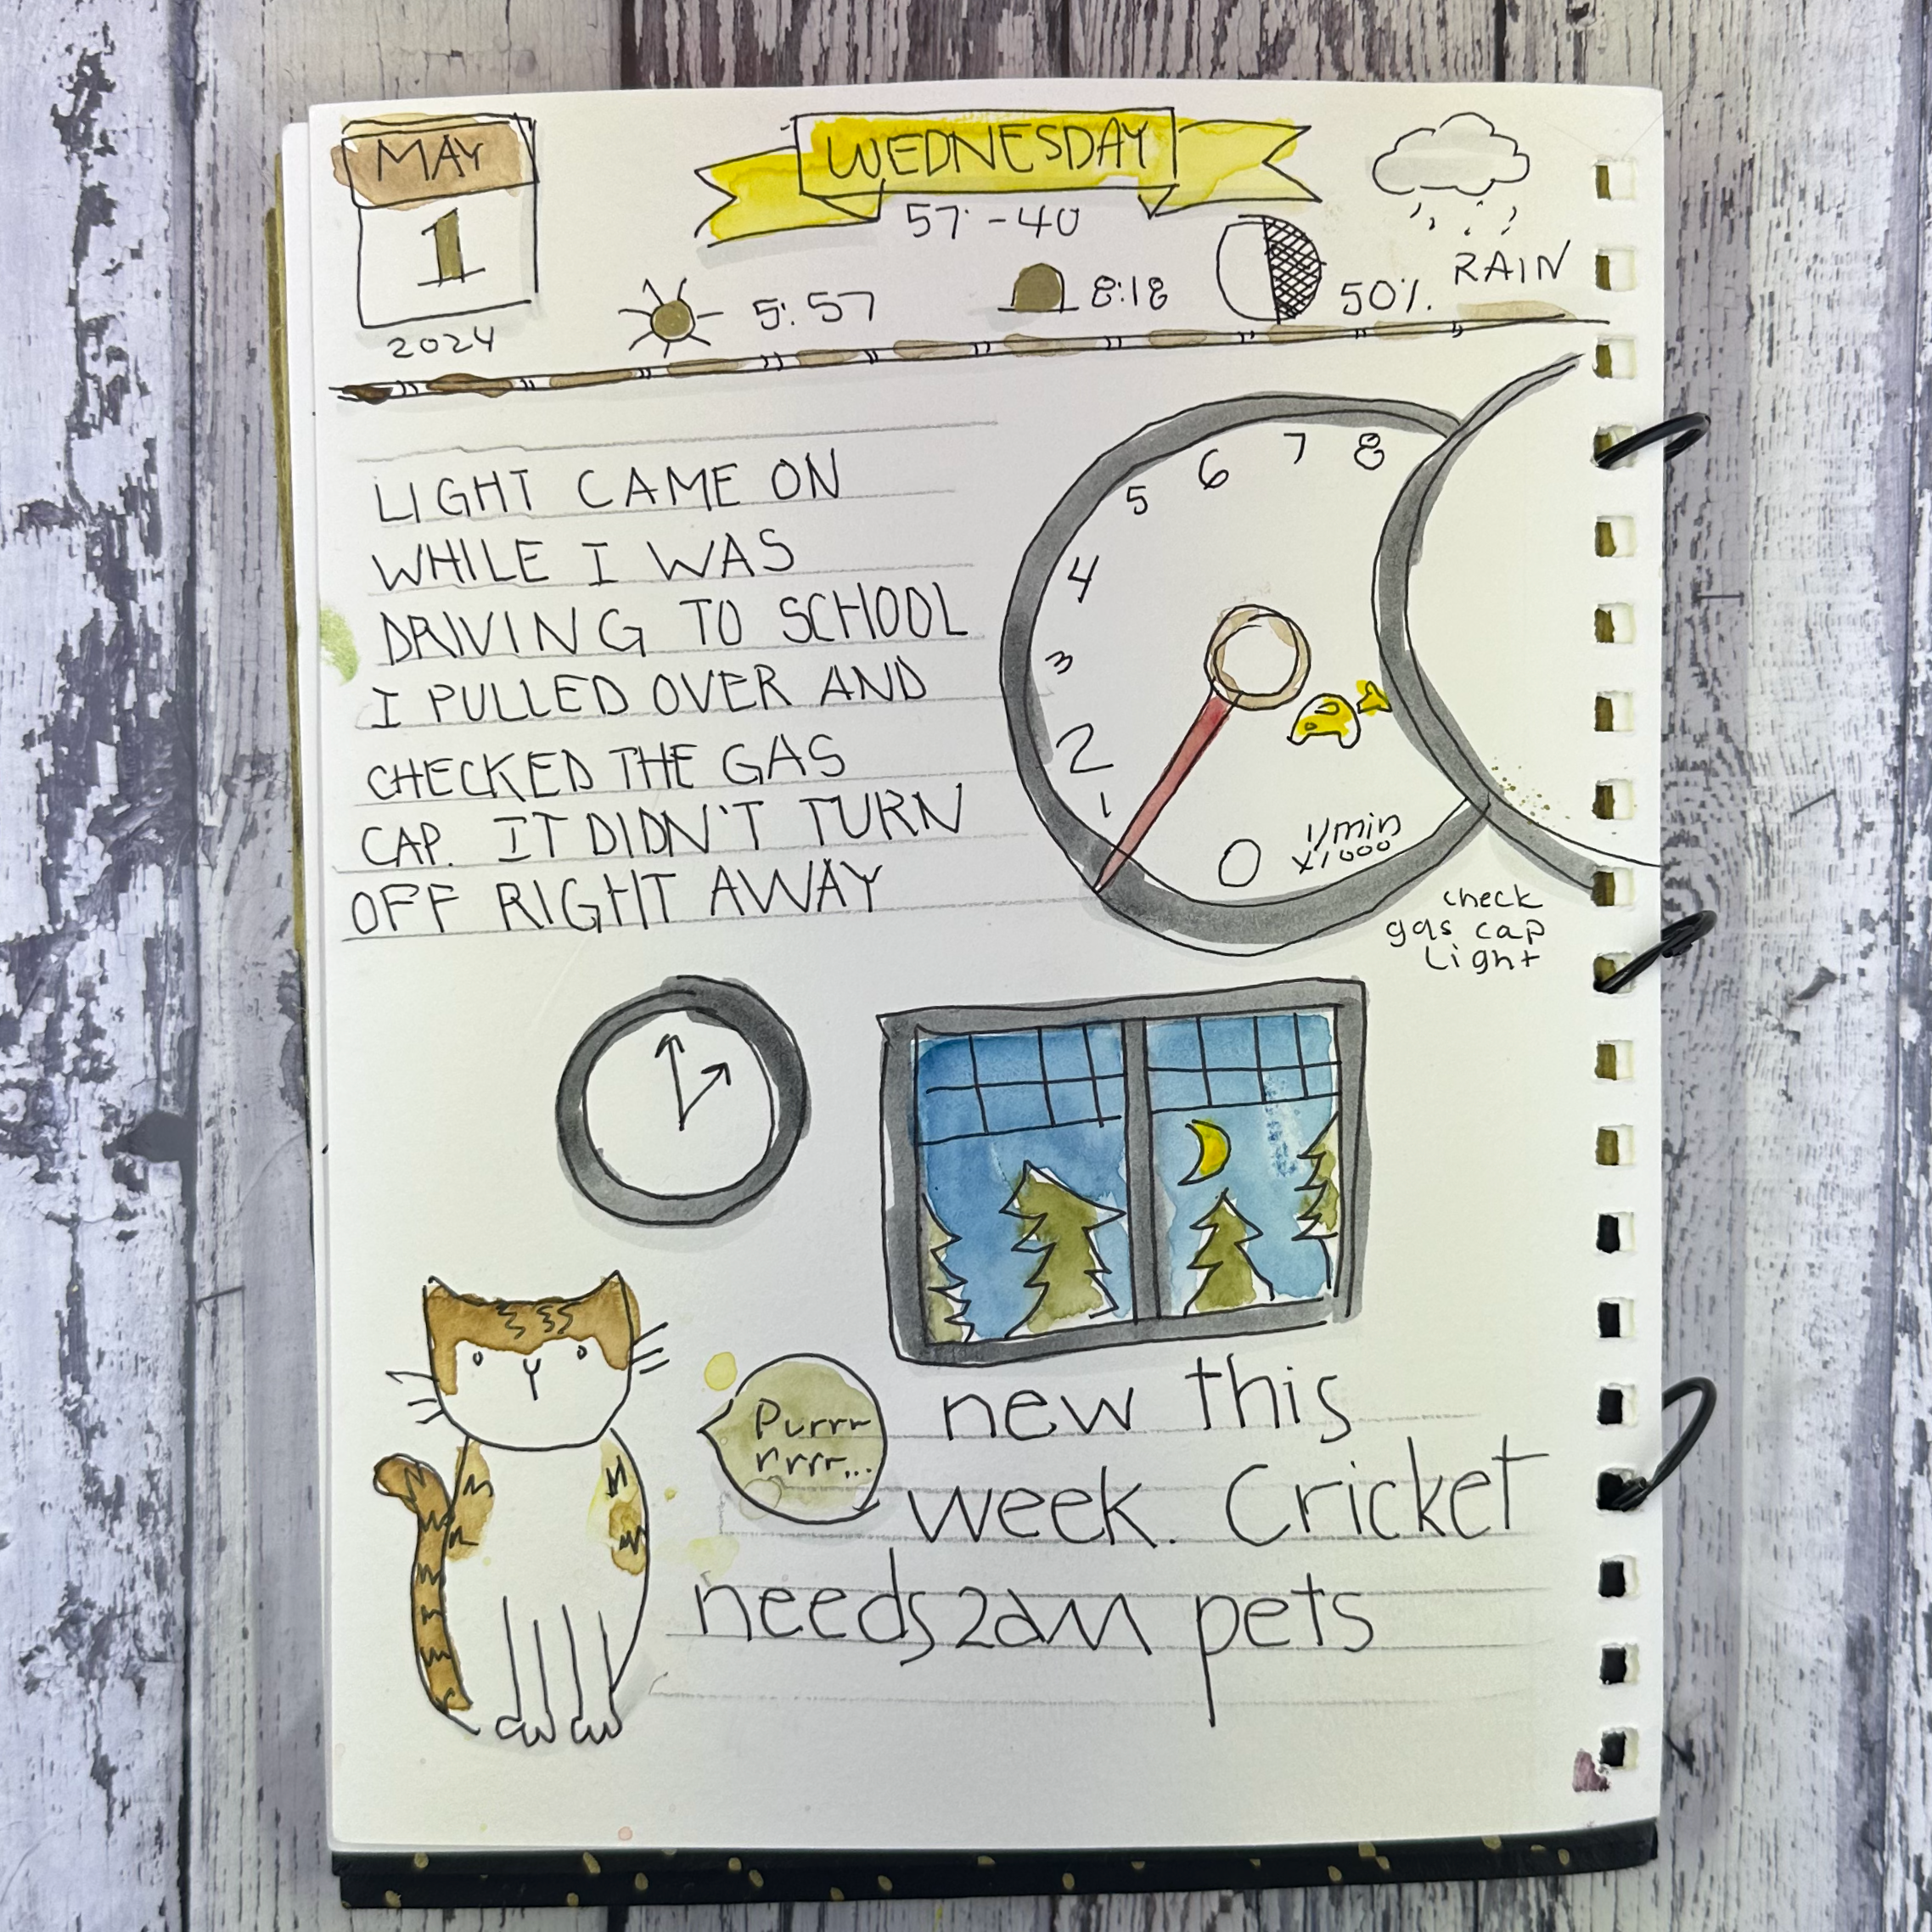 MAY
1
2024
WEDNESDAY
57 - 40
5:57
8:18
50%
RAIN
LIGHT CAME ON
WHILE I WAS
DRIVING TO SCHOOL
I PULLED OVER AND
CHECKED THE GAS
CAP. IT DIDN'T TURN
OFF RIGHT AWAY
8
7
6
5
4
3
2
1
0
1/min
x1000
check
gas cap
Light
Purrr
rrrr...
new this
week. Cricket
needs 2am pets